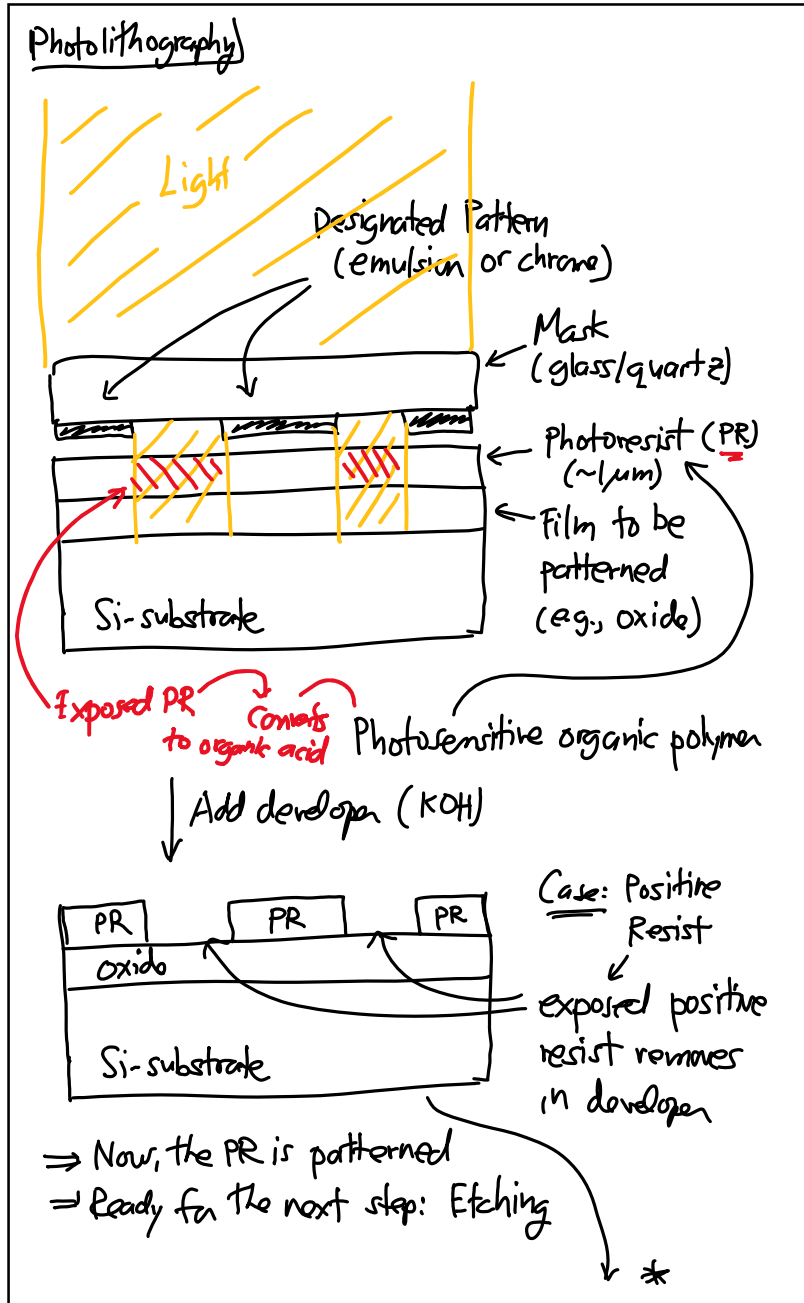 Photolithography
Light
Designated Pattern
(emulsion or chrome)
Mask
(glass/quartz)
Photoresist (PR)
(~1μm)
Film to be
patterned
(e.g., oxide)
Si-substrate
Exposed PR
Converts
to organic acid
Photosensitive organic polymer
Add developer (KOH)
Case: Positive
Resist
PR
PR
PR
oxide
exposed positive
resist removes
in developer
Si-substrate
⇒ Now, the PR is patterned
⇒ Ready for the next step: Etching
*